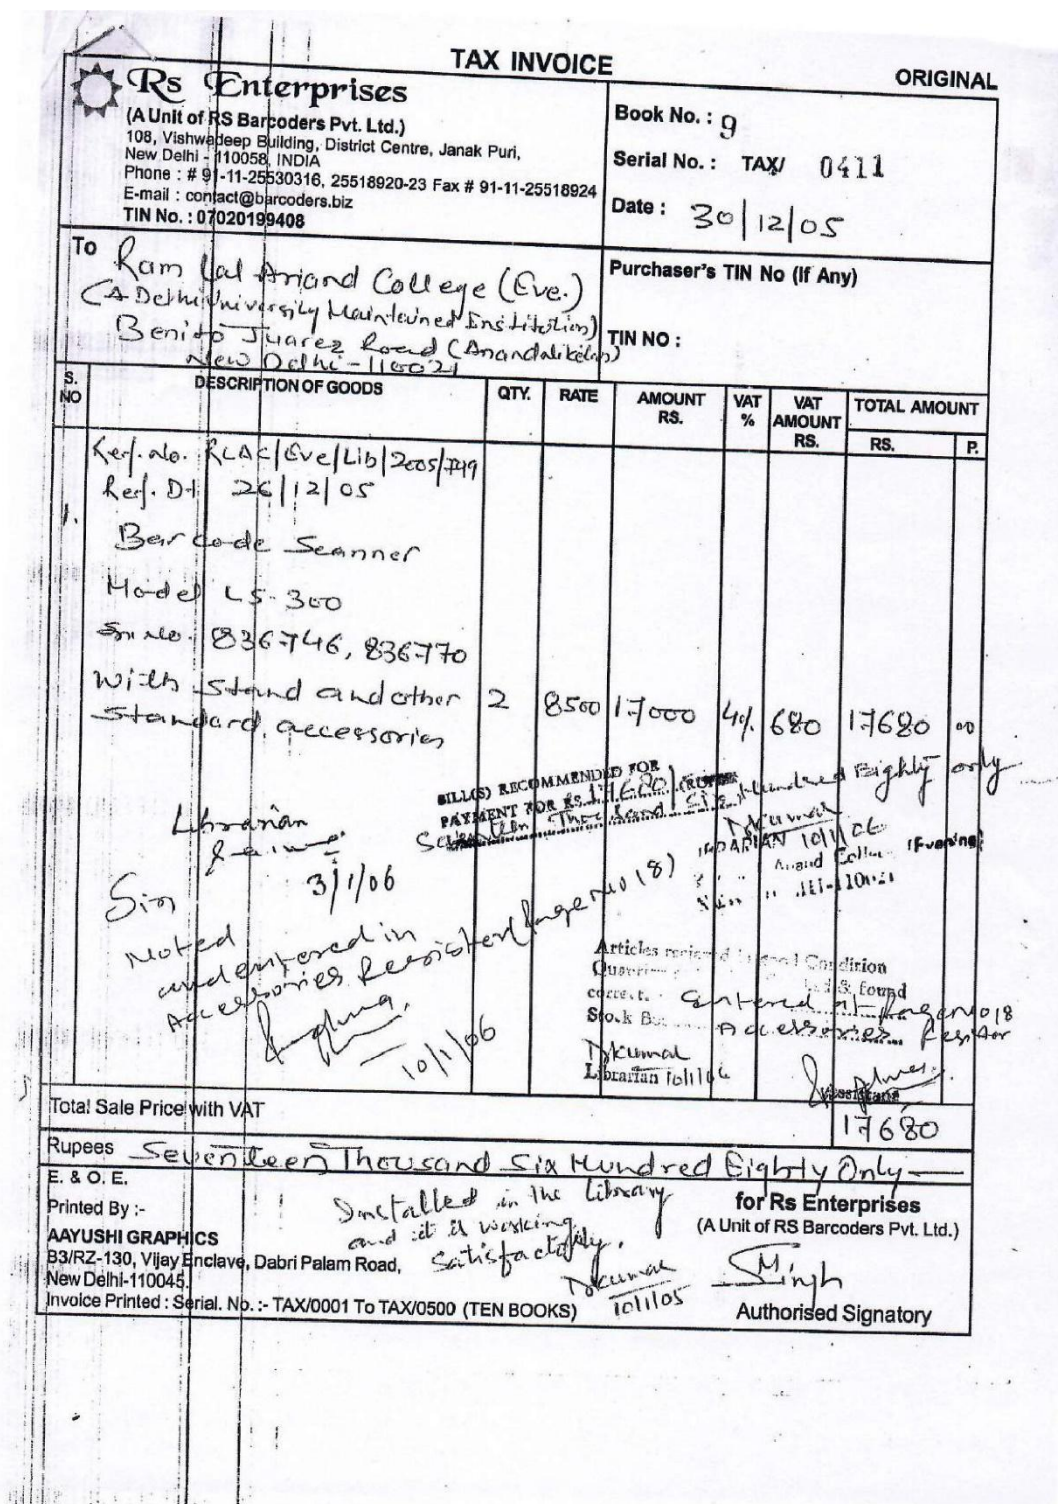 TAX INVOICE
ORIGINAL
Rs Enterprises
(A Unit of RS Barcoders Pvt. Ltd.)
108, Vishwadeep Building, District Centre, Janak Puri,
New Delhi - 110058, INDIA
Phone : # 91-11-25530316, 25518920-23 Fax # 91-11-25518924
E-mail : contact@barcoders.biz
TIN No. : 07020199408
Book No. : 9
Serial No. : TAX/ 0411
Date : 30/12/05
To Ram Lal Anand College (Eve.)
(A Delhi University Maintained Institution)
Benito Juarez Road
New Delhi - 110021
Purchaser's TIN No (If Any)
TIN NO :
S. NO DESCRIPTION OF GOODS QTY. RATE AMOUNT RS. VAT % VAT AMOUNT RS. TOTAL AMOUNT RS. P.
Ref. No. RLAC/Eve/Lib/2005/749
Ref. Dt 26/12/05
1. Bar Code Scanner
Model LS-300
Sr. No. 836746, 836770
With Stand and other 2 8500 17000 4% 680 17680 00
Standard accessories
BILL(S) RECOMMENDED FOR
PAYMENT FOR RS. 17680/- (RUPEES
Seventeen Thousand Six Hundred Eighty only
Librarian
3/1/06
DKumar
LIBRARIAN 10/1/06
Anand College (Evening)
Sir
Noted
and entered in
Accessories Register (Page No 18)
10/1/06
Articles received in good Condition
found
correct. Entered at Page No 18
Stock Accessories Register
DKumar
Librarian 10/1/06
Total Sale Price with VAT 17680
Rupees Seventeen Thousand Six Hundred Eighty Only
E. & O. E.
Printed By :-
AAYUSHI GRAPHICS
B3/RZ-130, Vijay Enclave, Dabri Palam Road,
New Delhi-110045.
Invoice Printed : Serial. No. :- TAX/0001 To TAX/0500 (TEN BOOKS)
Installed in the Library
and it is working
Satisfactorily.
DKumar
10/1/05
for Rs Enterprises
(A Unit of RS Barcoders Pvt. Ltd.)
Singh
Authorised Signatory